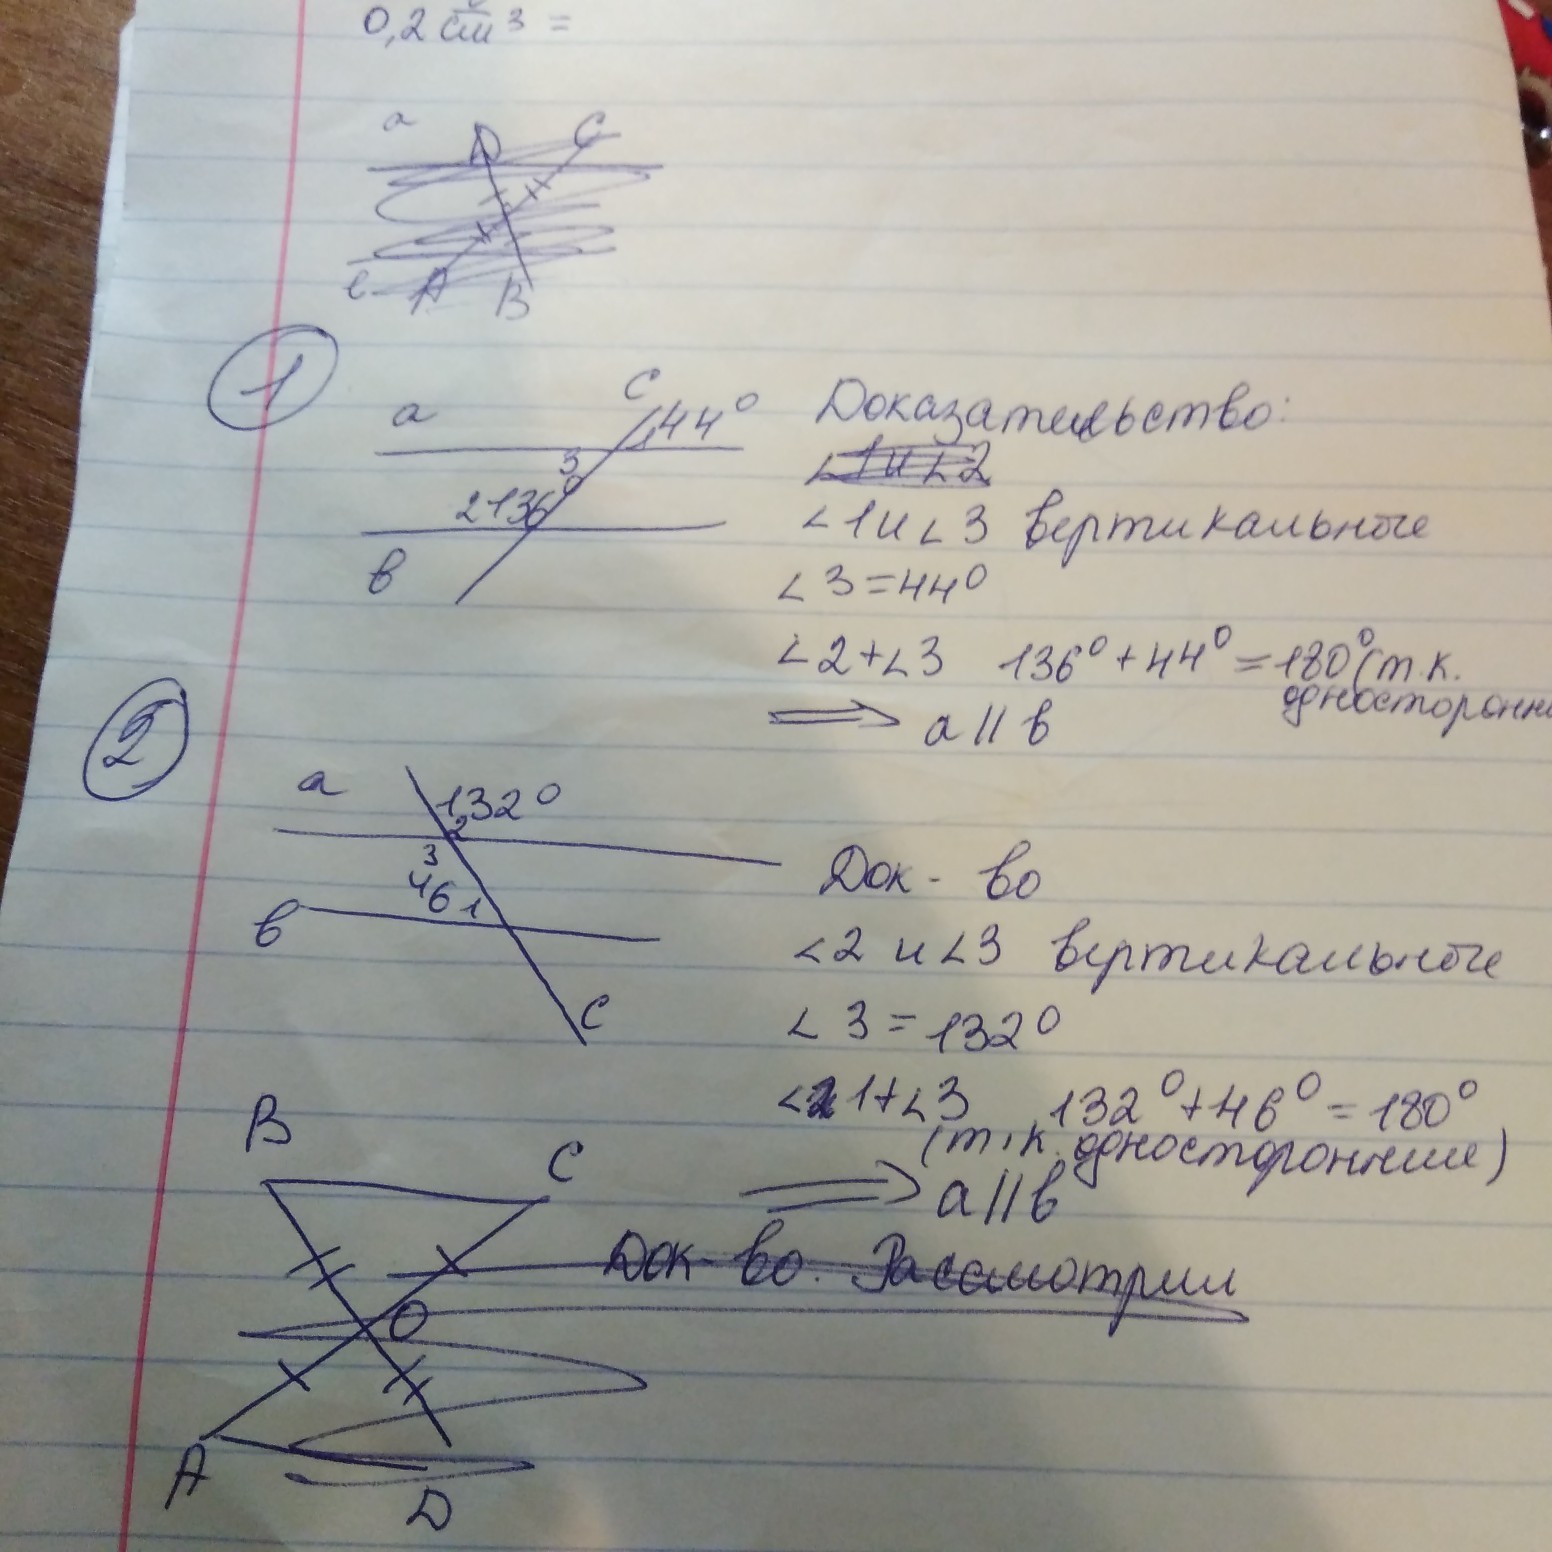 0,2 см³ =
a D C
в A B
1
a C 44°
1
3
2 136°
в
Доказательство:
∠1 и ∠2
∠1 и ∠3 вертикальные
∠3 = 44°
∠2+∠3 136° + 44° = 180° (т.к.
односторонни
⟹ a || в
2
a 132°
2
3
46 1
в
C
Док - во
∠2 и ∠3 вертикальные
∠3 = 132°
∠1+∠3 132° + 46° = 180°
(т.к. односторонние)
⟹ a || в
B C
Док-во. Рассмотрим
O
A D